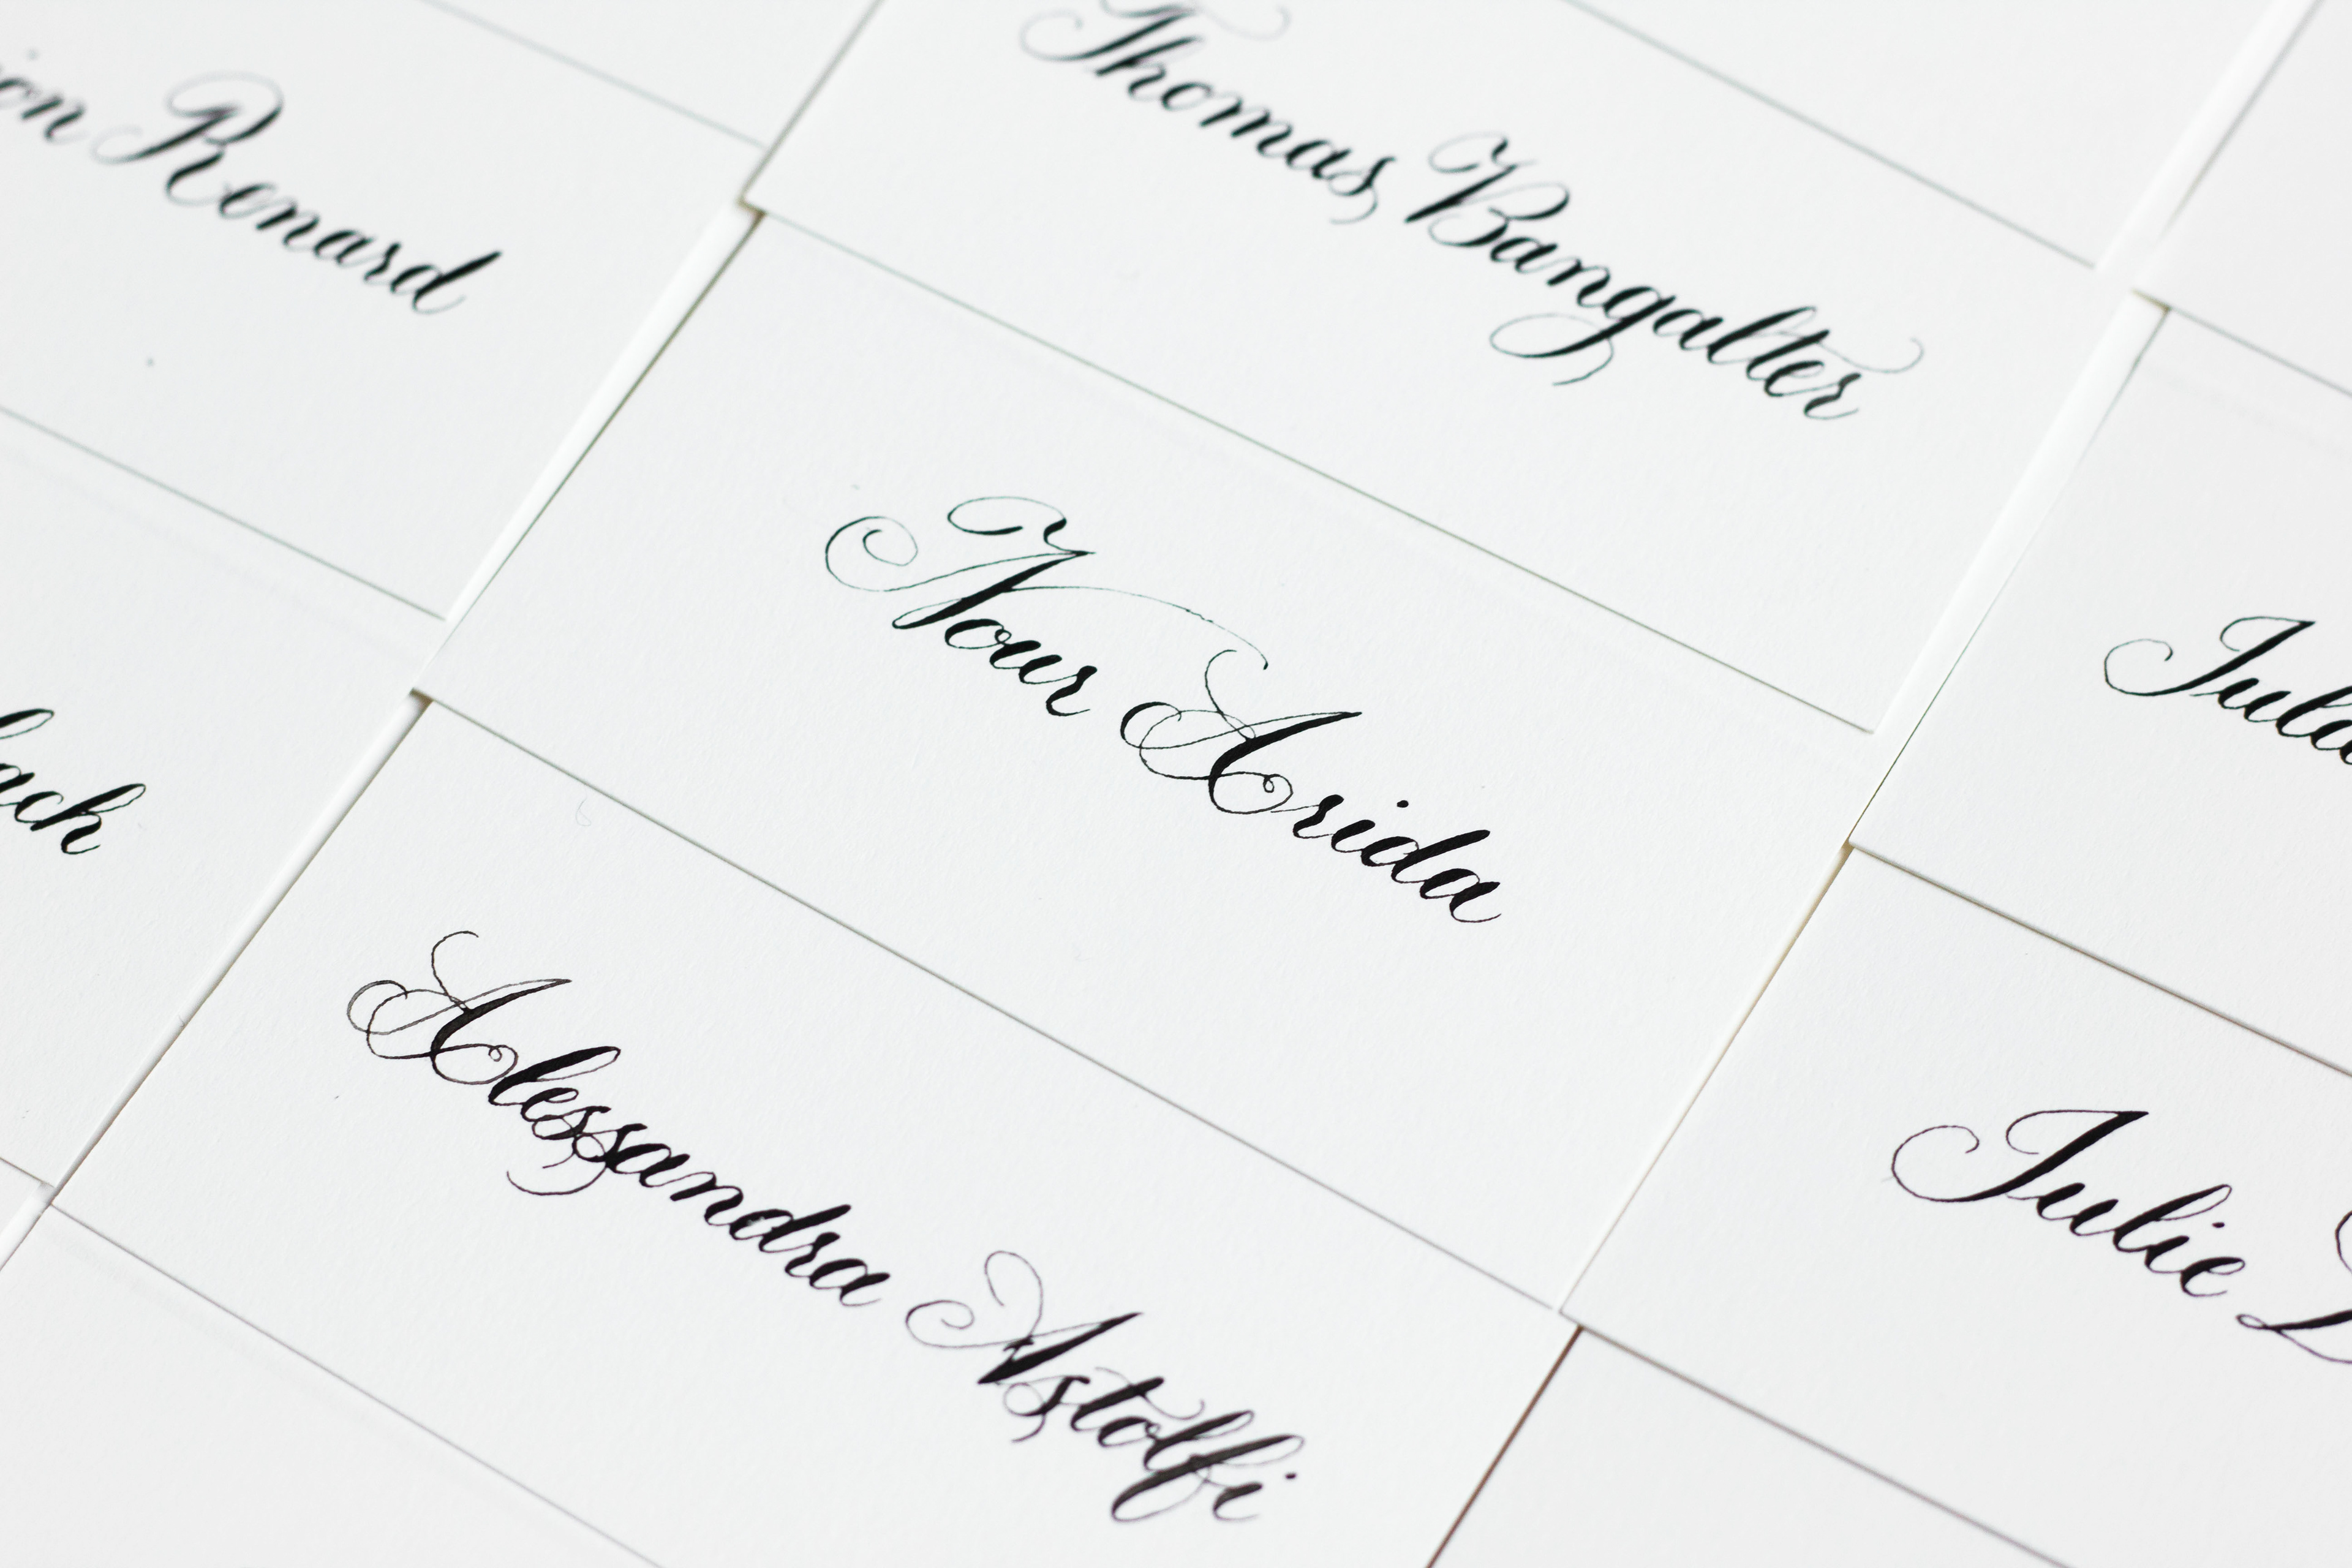 Renard
Thomas Bangalter
Nour Arida
Alessandra Astolfi
Julie